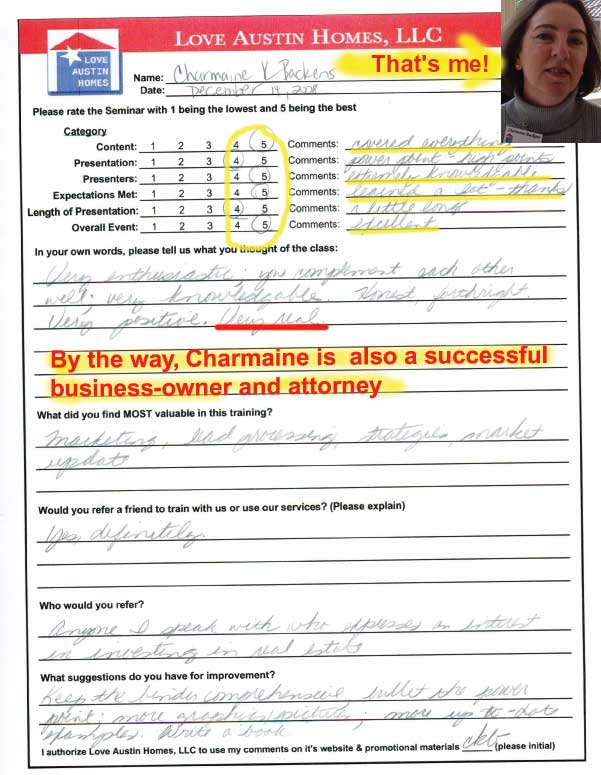 LOVE AUSTIN HOMES, LLC
LOVE
AUSTIN
HOMES
Name: Charmaine K Backens
That's me!
Date: December 14, 2008
Charmaine Backens
Please rate the Seminar with 1 being the lowest and 5 being the best
Category
Content: 1 2 3 4 5 Comments: covered everything
Presentation: 1 2 3 4 5 Comments: power point - high points
Presenters: 1 2 3 4 5 Comments: extremely knowledgable
Expectations Met: 1 2 3 4 5 Comments: learned a lot - thanks
Length of Presentation: 1 2 3 4 5 Comments: a little long
Overall Event: 1 2 3 4 5 Comments: excellent
In your own words, please tell us what you thought of the class:
Very enthusiastic; you complement each other
well; very knowledgable. Honest, forthright.
Very positive. Very real.
By the way, Charmaine is also a successful
business-owner and attorney
What did you find MOST valuable in this training?
Marketing, lead processing, strategies, market
update
Would you refer a friend to train with us or use our services? (Please explain)
Yes, definitely
Who would you refer?
Anyone I speak with who expresses an interest
in investing in real estate
What suggestions do you have for improvement?
Keep the binder comprehensive, bullet the power
point; more graphics/pictures; more up-to-date
examples. Write a book
I authorize Love Austin Homes, LLC to use my comments on it's website & promotional materials ckb (please initial)